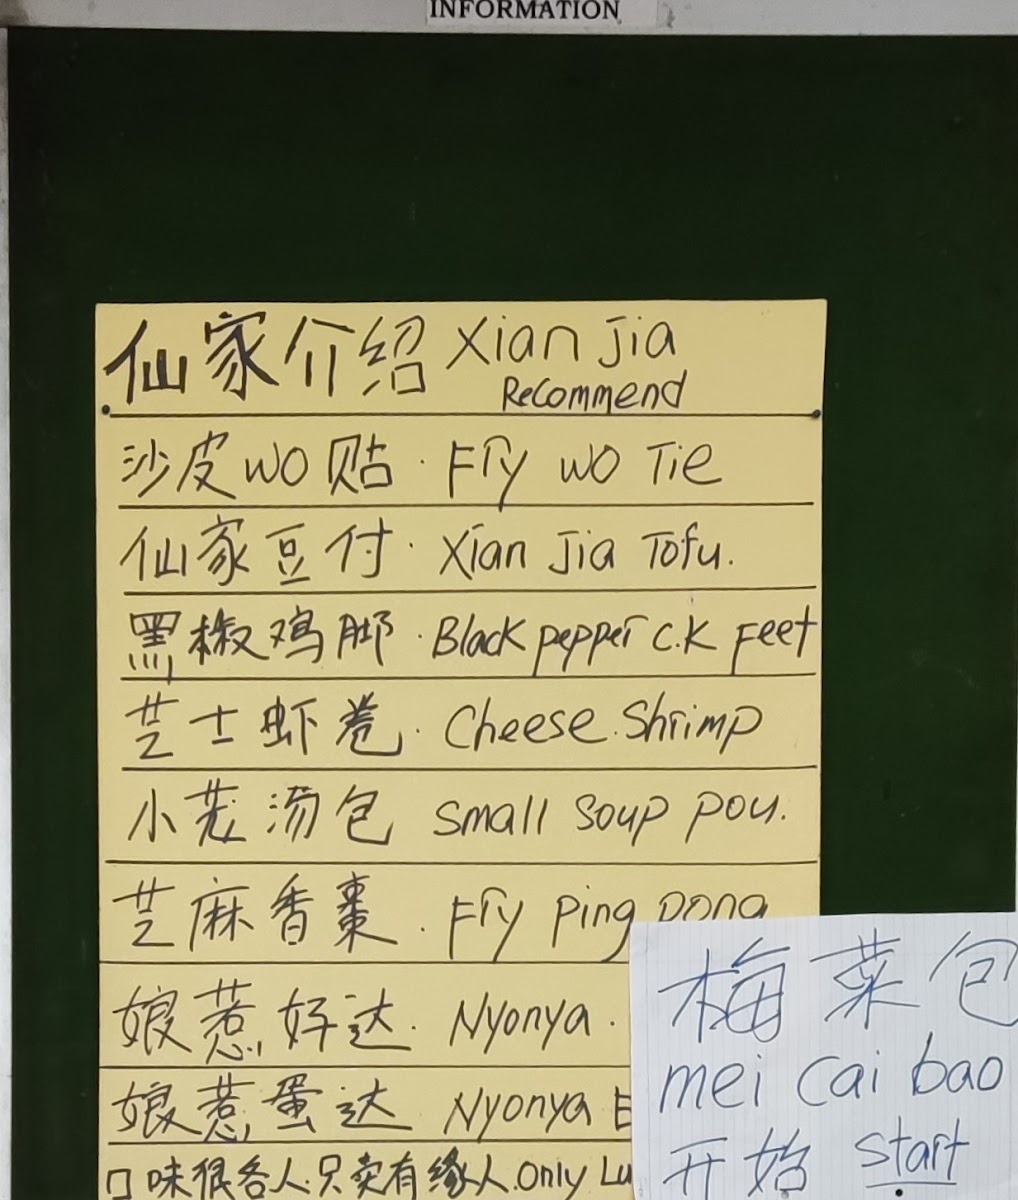 INFORMATION
仙家介绍 Xian Jia
Recommend
沙皮WO贴 · Fry WO Tie
仙家豆付 · Xian Jia Tofu.
黑椒鸡脚 · Black pepper C.K Feet
芝士虾卷 · Cheese. Shrimp
小茏汤包 Small Soup pou.
芝麻香枣 · Fry Ping Pong
娘惹好达 · Nyonya ·
娘惹蛋达 Nyonya
口味很各人.只卖有缘人.Only
梅菜包
mei cai bao
开始 start